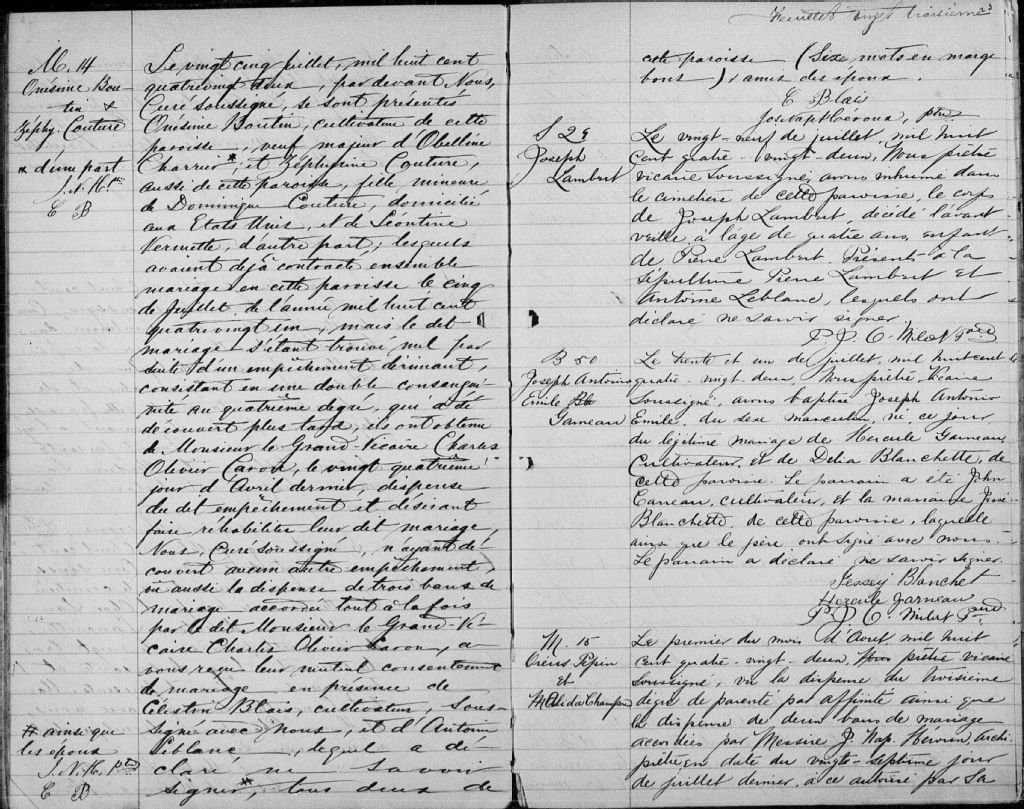 M. 14
Onésime Bou-
tin &
Zéphy. Couture
* d'une part
J. N. H. Ptre
C B
Le vingt cinq juillet, mil huit cent
quatrevingt deux, par devant Nous,
Curé soussigné, se sont présentés
Onésime Boutin, cultivateur de cette
paroisse, veuf majeur d'Obeline
Charrier *, et Zéphyrine Couture,
aussi de cette paroisse, fille mineure
de Dominique Couture, domicilié
aux Etats Unis, et de Léontine
Vermette, d'autre part; lesquels
avaient déjà contracté ensemble
mariage en cette paroisse le cinq
de Juillet de l'année mil huit cent
quatrevingt un, mais le dit
mariage s'étant trouvé nul par
suite d'un empêchement dirimant,
consistant en une double consangui-
nité au quatrième degré, qui a été
découvert plus tard, ils ont obtenu
de Monsieur le Grand-Vicaire Charles
Olivier Caron, le vingt quatrième
jour d'Avril dernier, dispense
du dit empêchement et désirant
faire réhabiliter leur dit mariage,
Nous, Curé soussigné, n'ayant dé-
couvert aucun autre empêchement,
vu aussi la dispense de trois bans de
mariage accordée tout à la fois
par le dit Monsieur le Grand-Vi-
caire Charles Olivier Caron, a
vons reçu leur mutuel consentement
de mariage en présence de
Célestin Blais, cultivateur, sous-
signé avec nous, et d'Antoine
Leblanc, lequel a dé-
claré ne savoir
signer *, tous deux de
# ainsi que
les epoux
J. N. H. Ptre
C B
Feuillet vingt troisième
cette paroisse (Six mots en marge
bons) amis des epoux
C Blais
Jos Nap Heroux, Ptre
S 29
Joseph
Lambert
Le vingt-neuf de juillet, mil huit
cent quatre-vingt-deux, Nous prêtre
vicaire soussigné, avons inhumé dans
le cimetière de cette paroisse, le corps
de Joseph Lambert, décédé l'avant
veille, à l'âge de quatre ans, enfant
de Pierre Lambert. Présents à la
sépulture Pierre Lambert et
Antoine Leblanc, lesquels ont
déclaré ne savoir signer.
P. J. C. Milot
B 50
Joseph Antonio
Emile
Garneau
Le trente et un de juillet, mil huit cent
quatre-vingt-deux, Nous prêtre, Vicaire
soussigné, avons baptisé Joseph Antonio
Emile, du sexe masculin, né ce jour,
du légitime mariage de Hercule Garneau
cultivateur, et de Délia Blanchette, de
cette paroisse. Le parrain a été John
Garneau, cultivateur, et la marraine
Blanchette, de cette paroisse, laquelle
ainsi que le père ont signé avec nous.
Le parrain a déclaré ne savoir signer.
Jessey Blanchet
Hercule Garneau
P. J. C. Milot
M. 15
Créus Pépin
et
Alida Champou
Le premier du mois d'Aout mil huit
cent quatre-vingt-deux, Nous prêtre vicaire
soussigné, vu la dispense du troisième
degré de parenté par affinité ainsi que
la dispense de deux bans de mariage
accordées par Messire J. Nap. Heroux, archi-
prêtre en date du vingt-septième jour
de juillet dernier, à ce autorisé par Sa